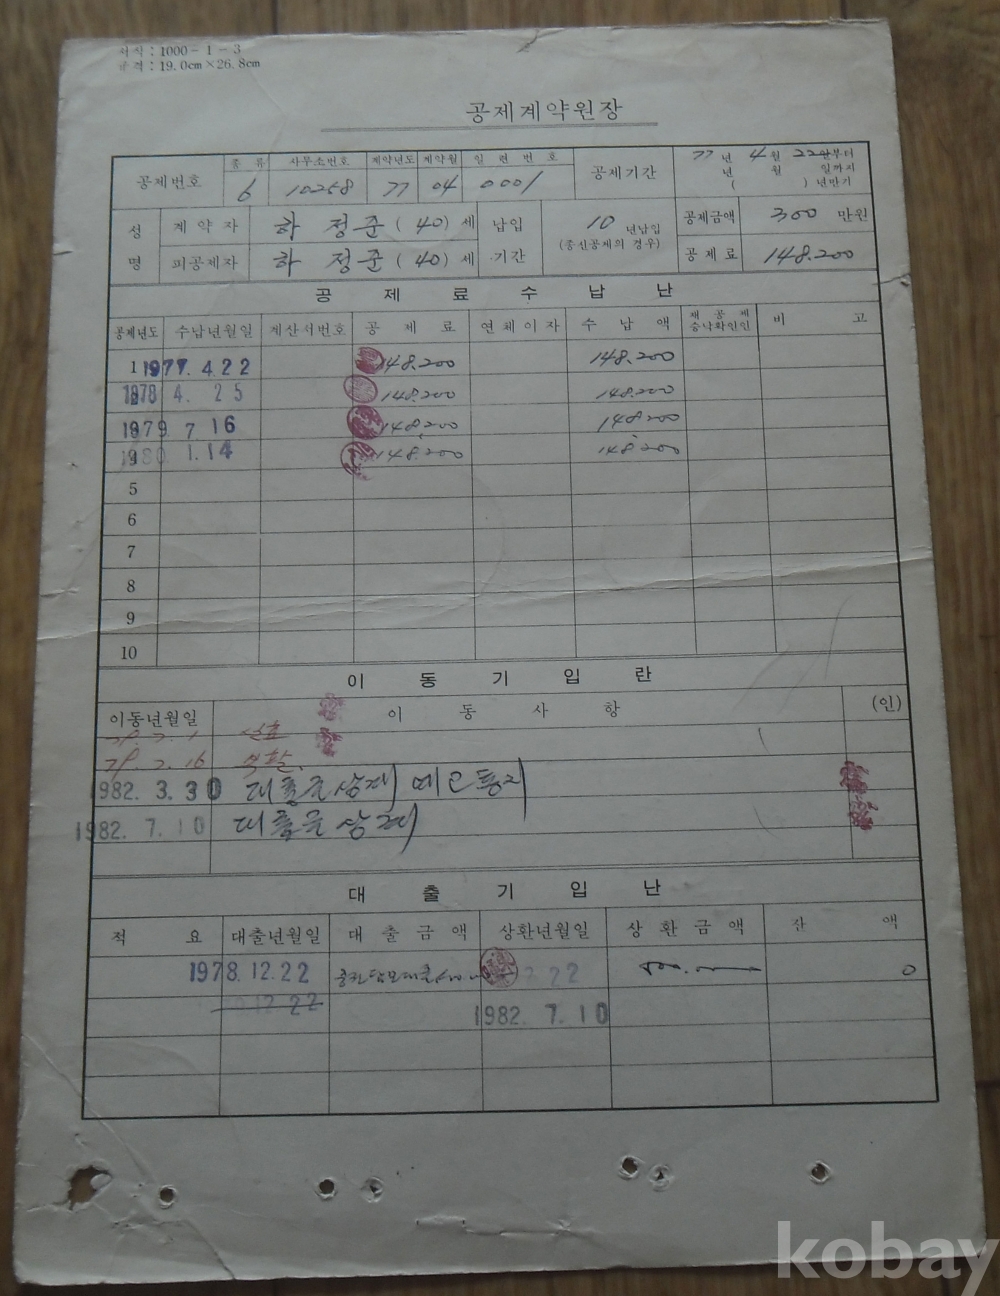 서식 : 1000 - 1 - 3
규격 : 19.0cm × 26.8cm
공제계약원장
공제번호 종류 사무소번호 계약년도 계약월 일련번호 공제기간 77년 4월 22일부터
6 10258 77 04 0001 년 월 일까지
( ) 년만기
성명 계약자 하정준 (40) 세 납입기간 10 년납입 공제금액 300 만원
(종신공제의 경우)
피공제자 하정준 (40) 세 공제료 148.200
공제료수납난
공제년도 수납년월일 계산서번호 공제료 연체이자 수납액 재공제승낙확인인 비고
1 1977. 4. 22 148.200 148.200
1978 4. 25 148.200 148.200
1979 7 16 148.200 148.200
1980 1.14 148.200 148.200
5
6
7
8
9
10
이동기입란
이동년월일 이동사항 (인)
79. 7. 1 실효
79. 7. 16 부활.
1982. 3. 30 대출금상계 예고통지
1982. 7. 10 대출금상계
대출기입난
적요 대출년월일 대출금액 상환년월일 상환금액 잔액
1978. 12. 22 22 0
12. 22 1982. 7. 10
kobay